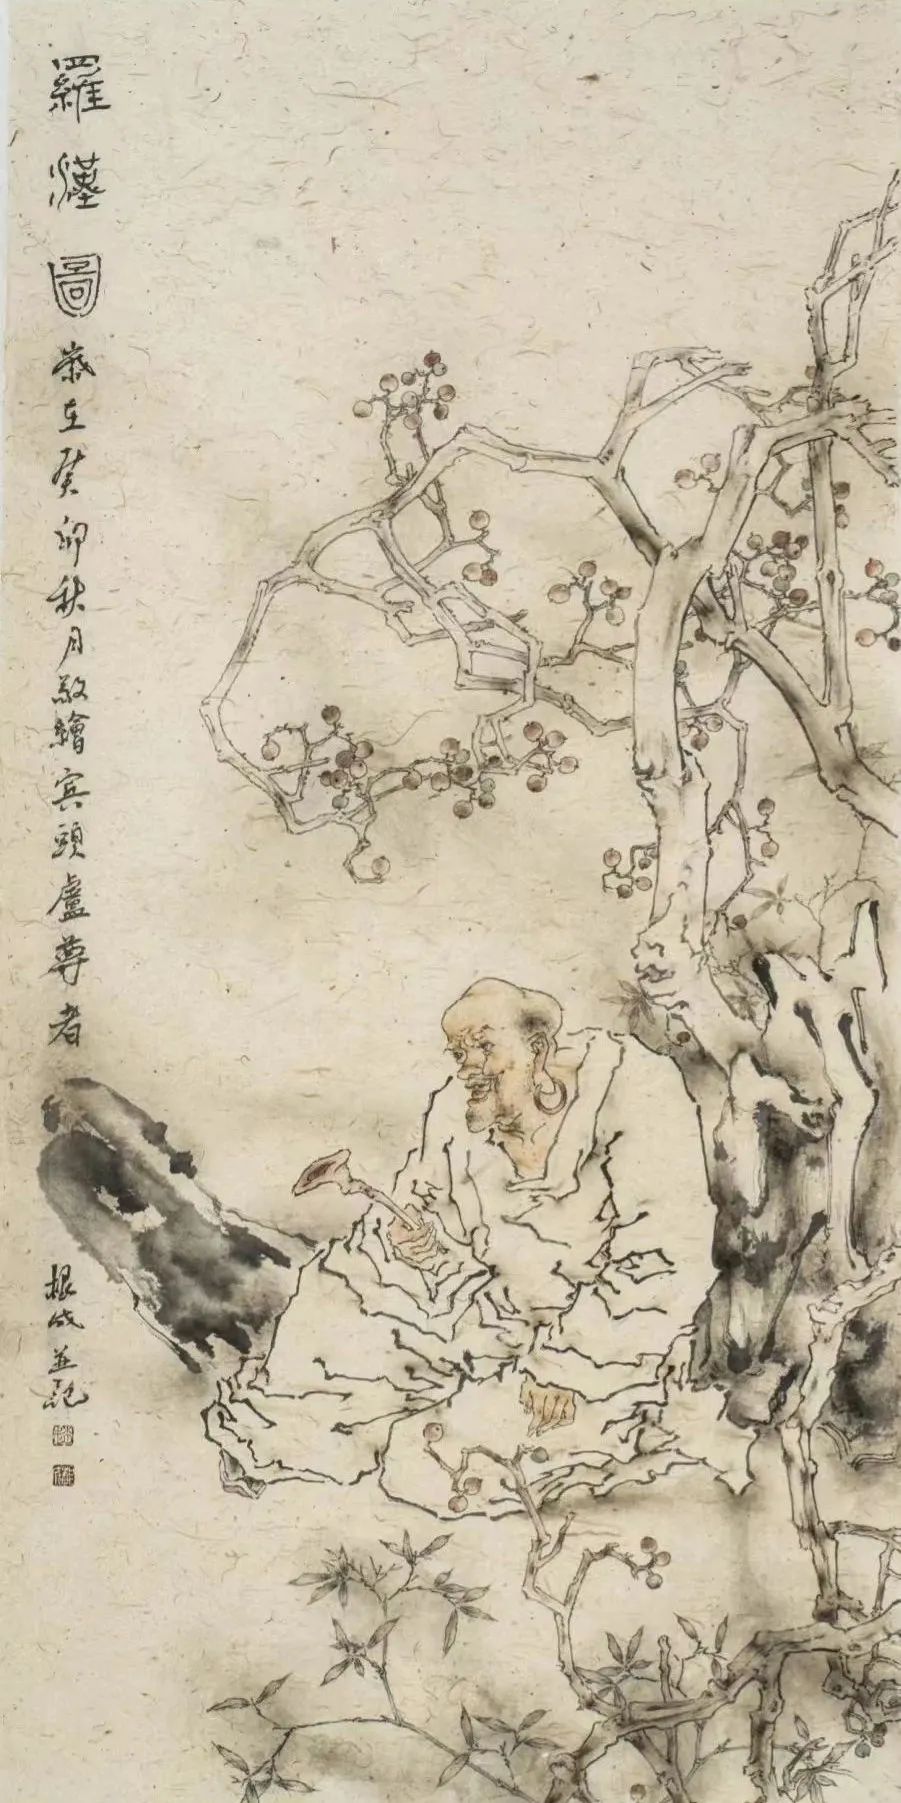 羅漢圖
歲在癸卯秋月敬繪賓頭盧尊者
根成並記